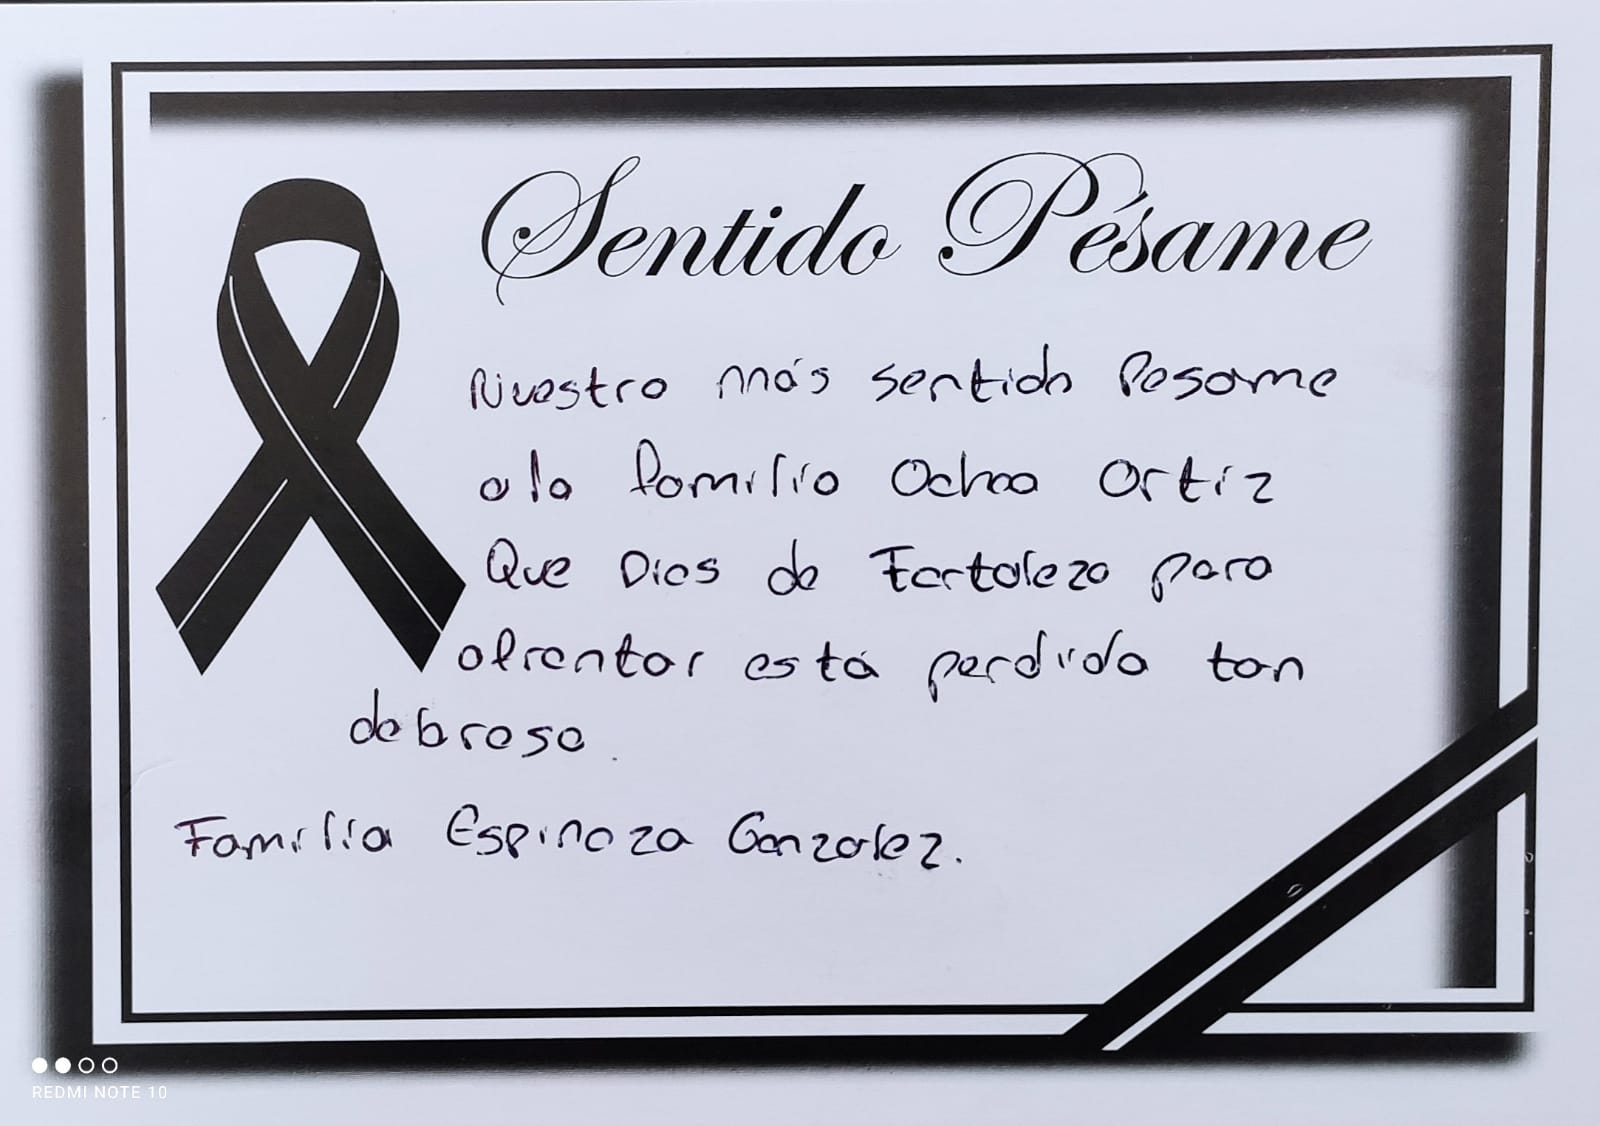 Sentido Pésame
Nuestro más sentido Pesame
a la familia Ochoa Ortiz
Que Dios de Fortaleza para
afrentar está perdida tan
dobrosa.
Familia Espinoza Gonzalez.
REDMI NOTE 10